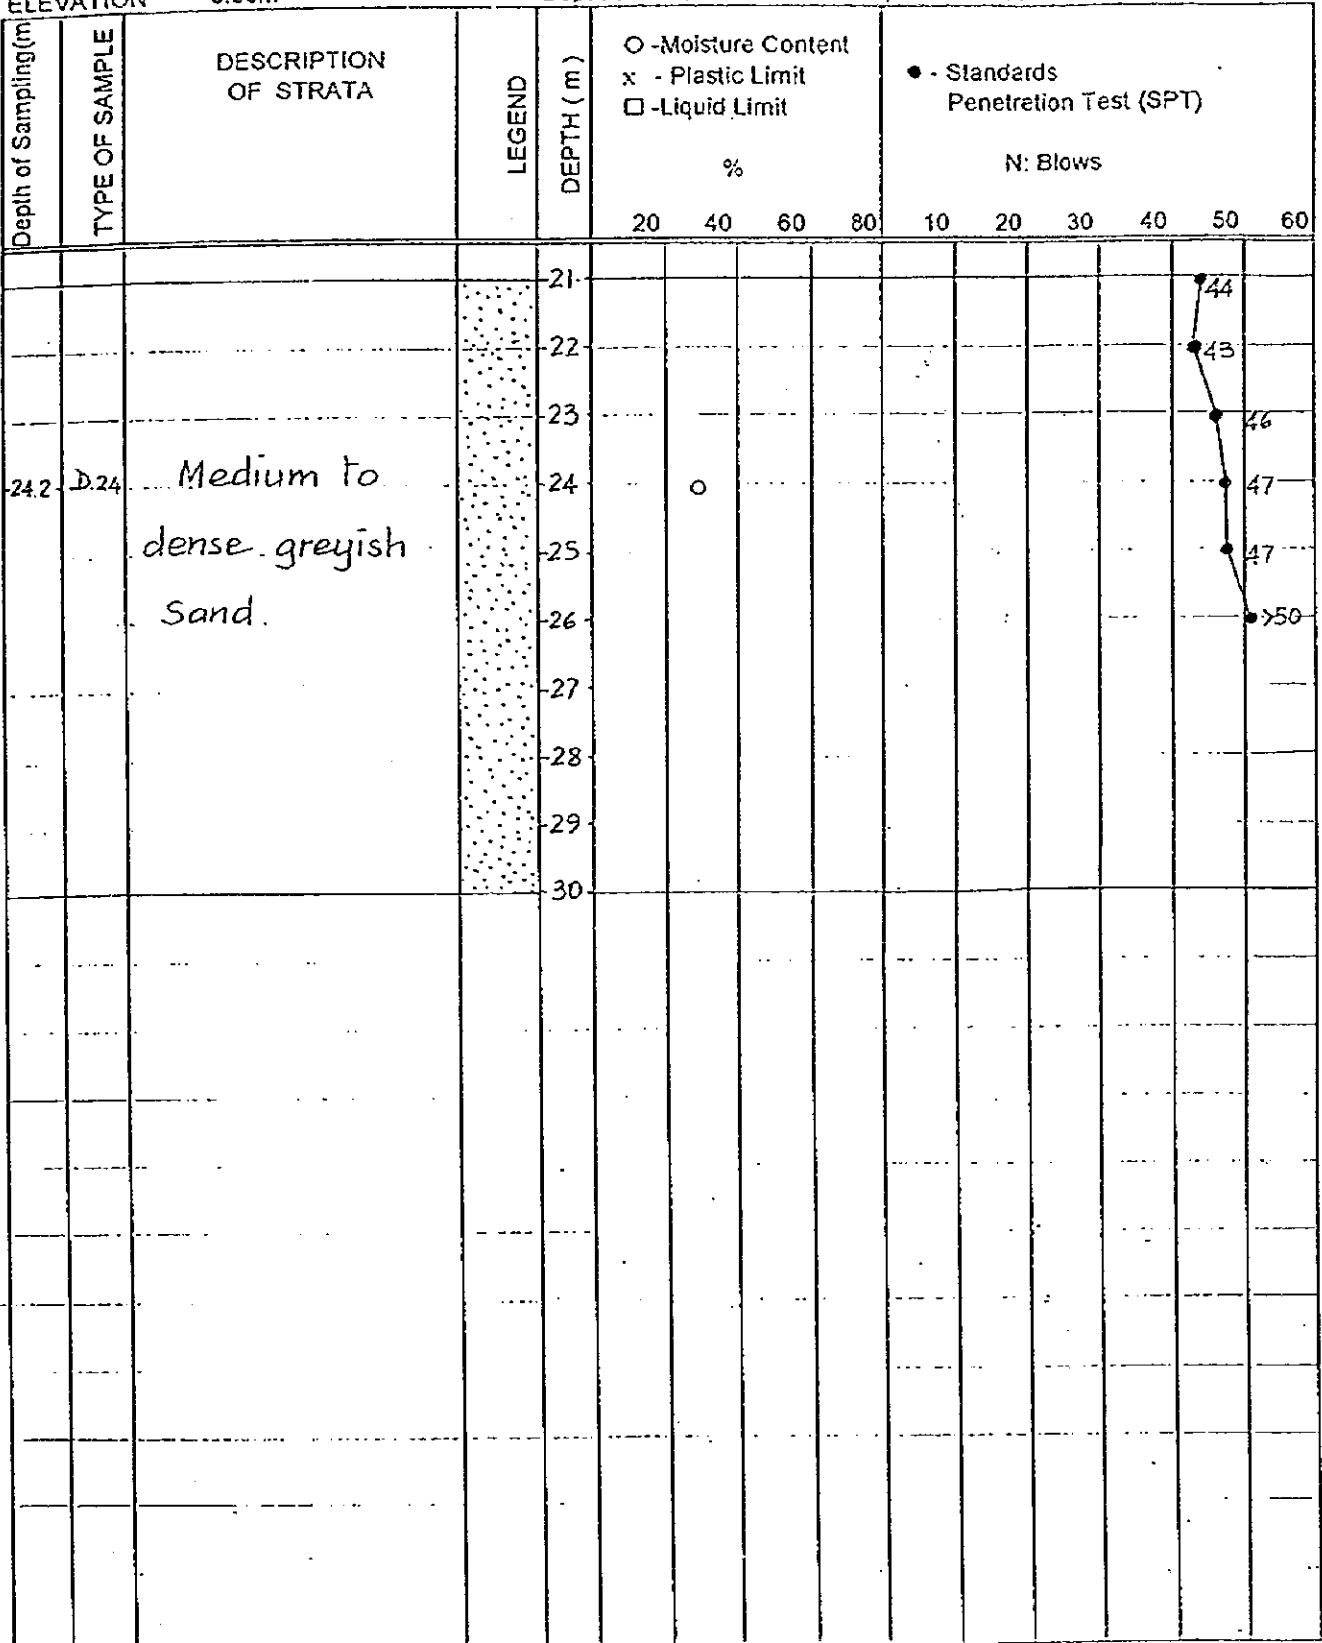 ELEVATION
Depth of Sampling(m
TYPE OF SAMPLE
DESCRIPTION
OF STRATA
LEGEND
DEPTH ( m )
O -Moisture Content
x - Plastic Limit
□ -Liquid Limit
%
20 40 60 80
● - Standards
Penetretion Test (SPT)
N: Blows
10 20 30 40 50 60
21 44
22 43
23 46
24.2 D.24 Medium to 24 47
dense greyish 25 47
Sand. 26 >50
27
28
29
30